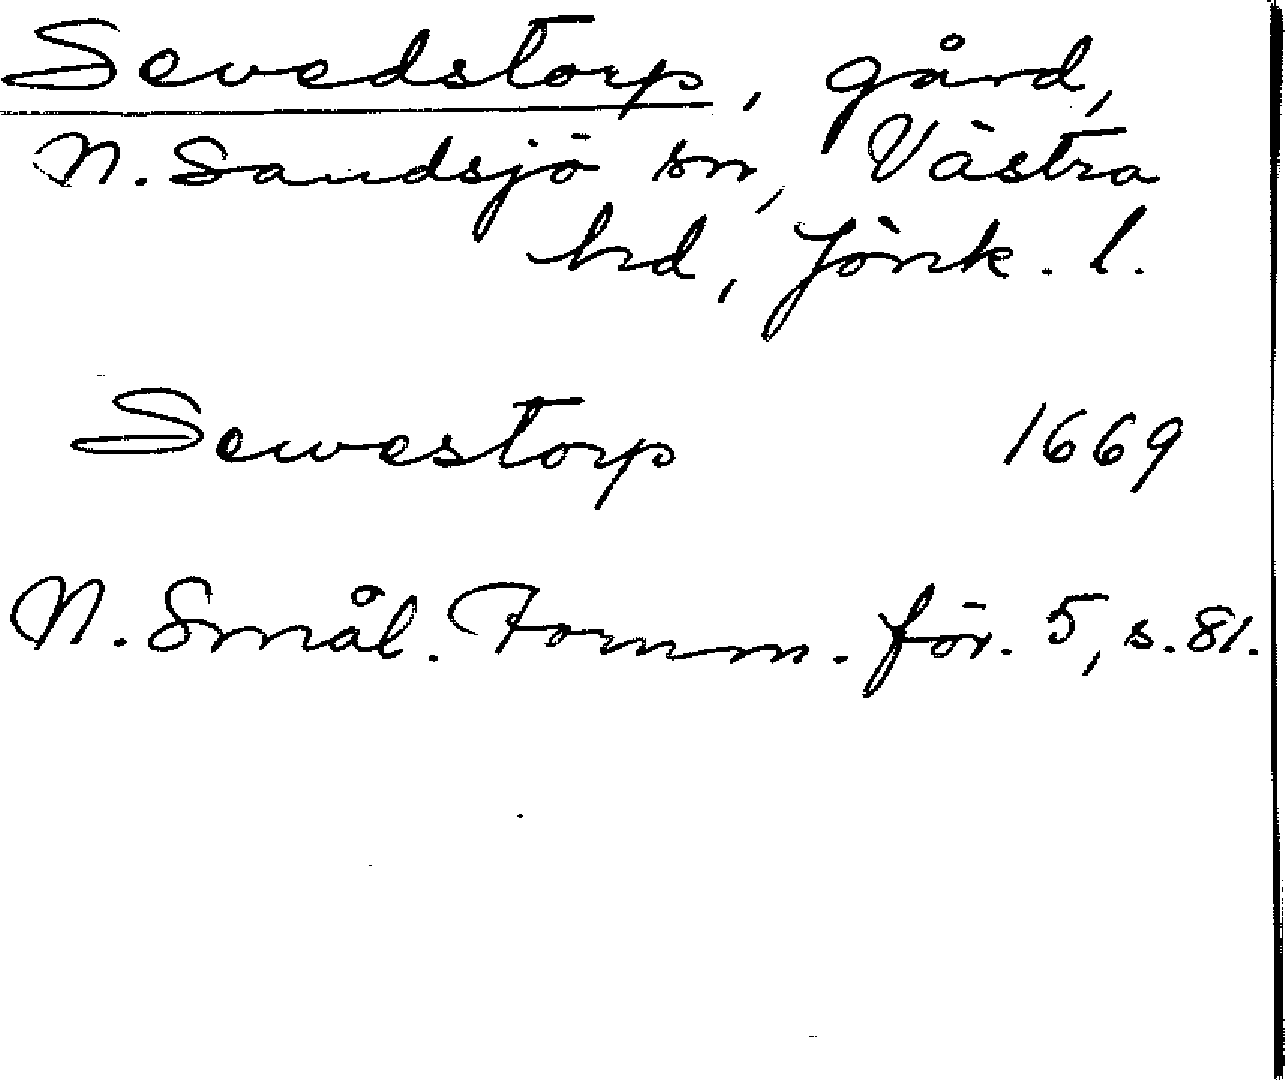 Sevedstorp, gård,
N. Sandsjö sn, Västra
hd, Jönk. l.
Sewestorp 1669
N. Smål. Fornm. för. 5, s. 81.